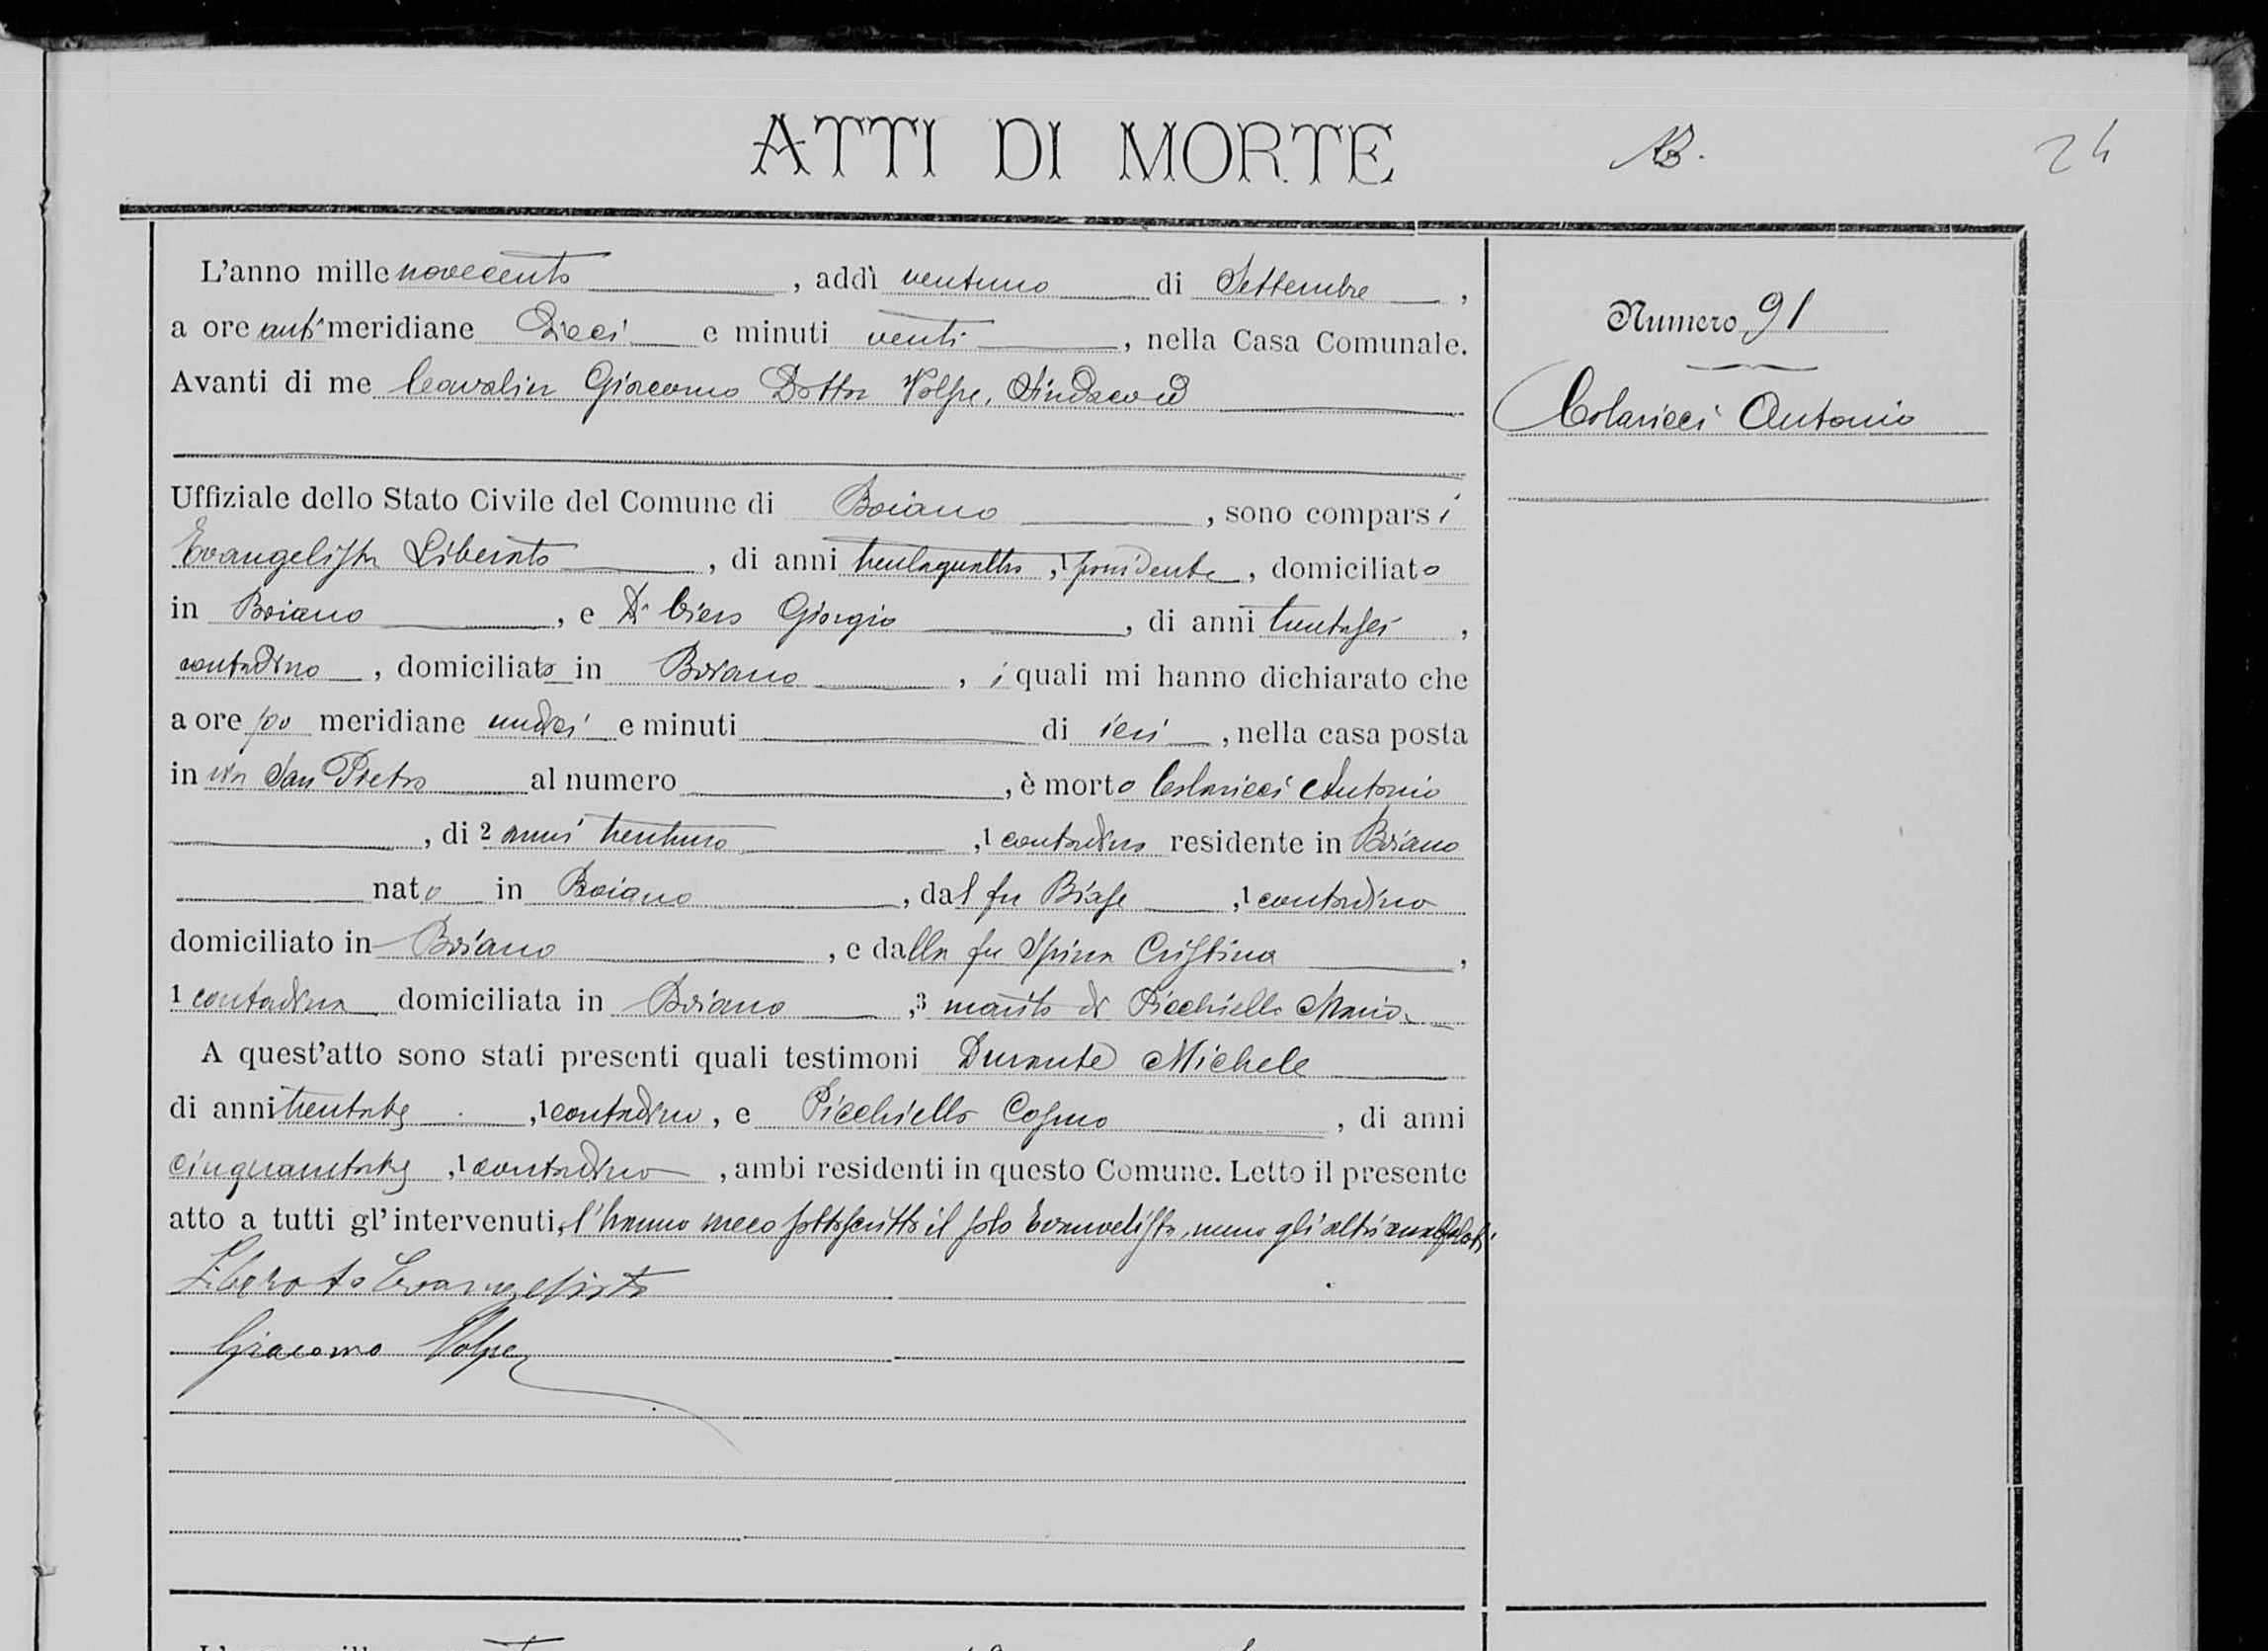 ATTI DI MORTE
24
L'anno mille novecento, addì ventuno di Settembre,
a ore anti meridiane Dieci e minuti venti, nella Casa Comunale.
Avanti di me Cavalier Giacomo Dottor Volpe, Sindaco
Uffiziale dello Stato Civile del Comune di Boiano, sono comparsi
Evangelista Liberato, di anni trentaquattro, 1 possidente, domiciliato
in Boiano, e Di Ciero Giorgio, di anni trentasei,
contadino, domiciliato in Boiano, i quali mi hanno dichiarato che
a ore po meridiane undici e minuti di ieri, nella casa posta
in via San Pietro al numero, è morto Colaricci Antonio
, di 2 anni trentuno, 1 contadino residente in Boiano
nato in Boiano, dal fu Biase, 1 contadino
domiciliato in Boiano, e dalla fu Spina Cristina,
1 contadina domiciliata in Boiano, 3 marito di Picchiello Maria
A quest'atto sono stati presenti quali testimoni Durante Michele
di anni trentatre, 1 contadino, e Picchiello Cosmo, di anni
cinquantatre, 1 contadino, ambi residenti in questo Comune. Letto il presente
atto a tutti gl'intervenuti, l'hanno meco sottoscritto il solo Evangelista, meno gli altri analfabeti
Liberato Evangelista
Giacomo Volpe
Numero 91
Colaricci Antonio